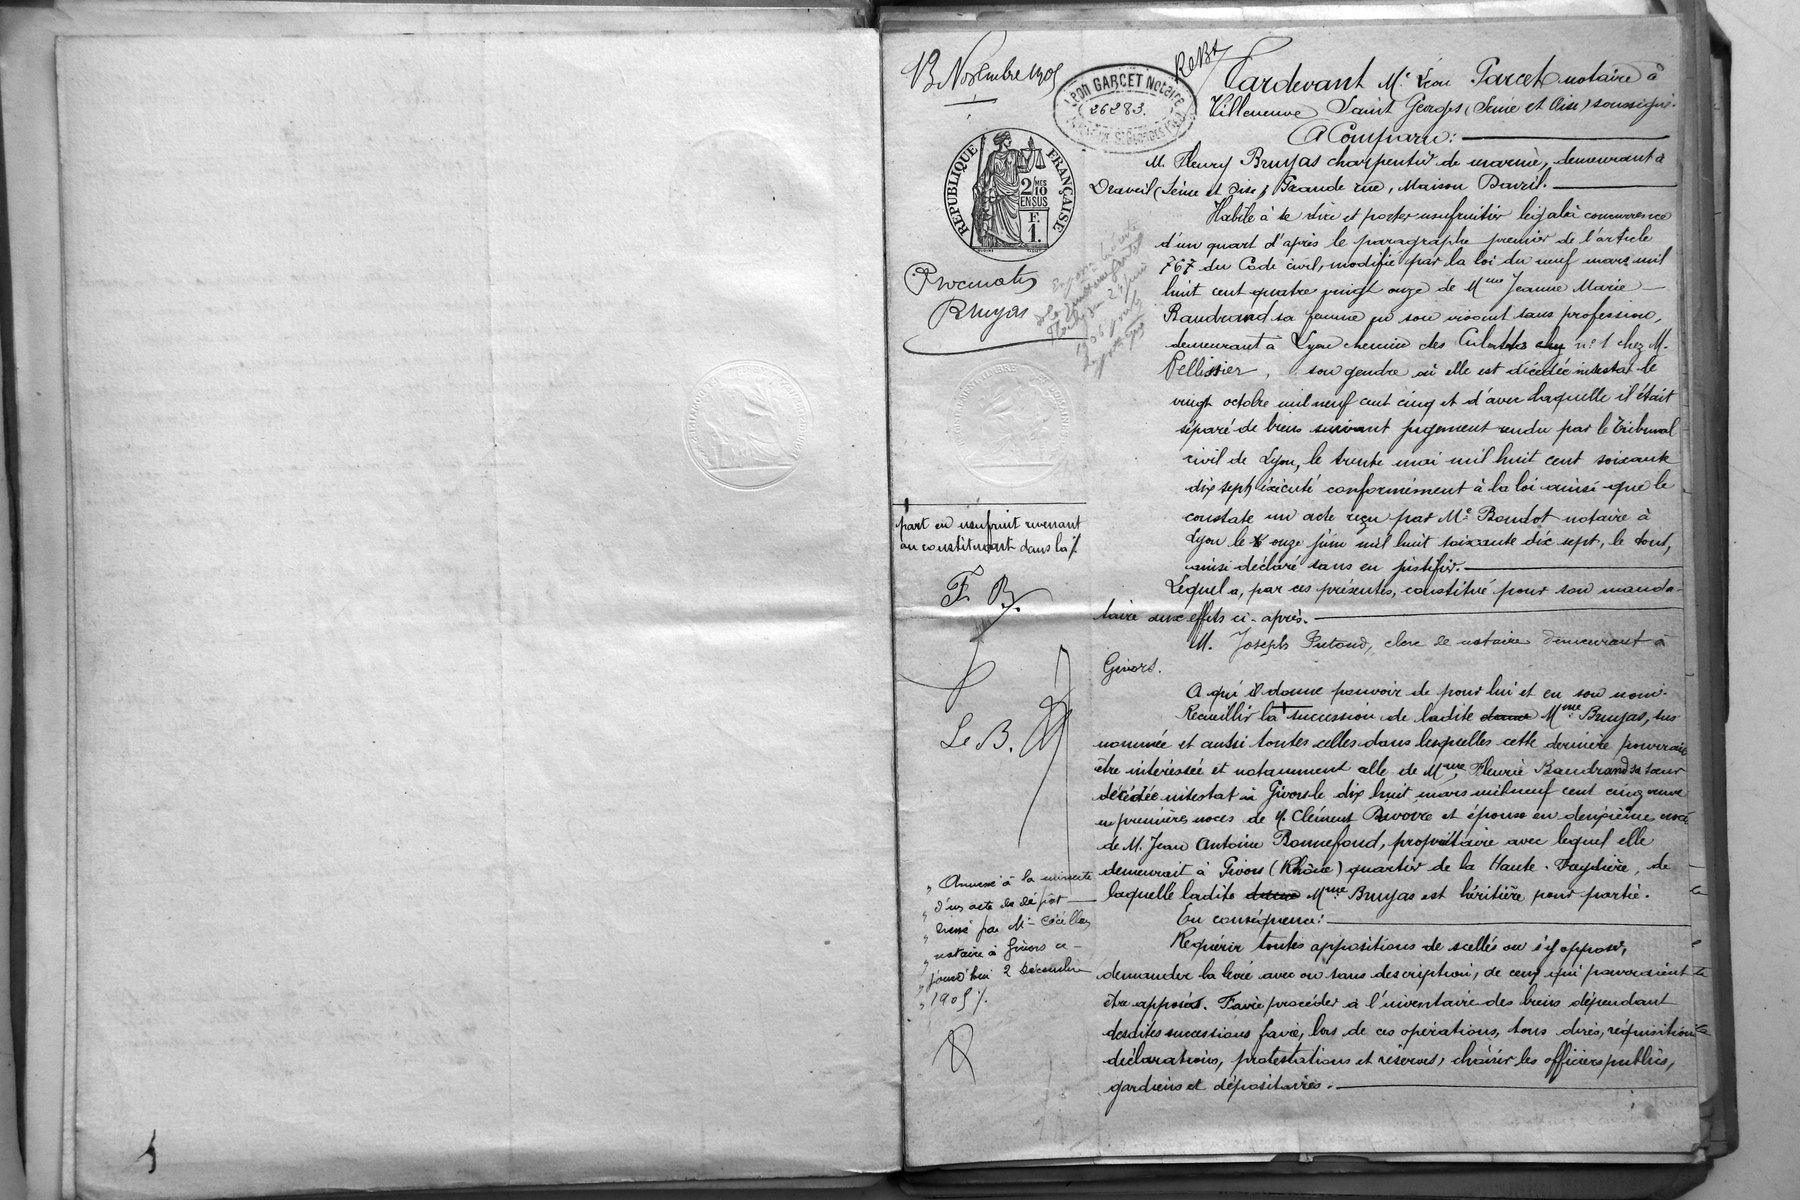 13 Novembre 1905
Léon GARCET Notaire
26283.
RÉPUBLIQUE FRANÇAISE
2 MES
10
EN SUS
F.
1.
Procuration
Bruyas
part en usufruit revenant
au constituant dans la /.
F. B.
Le B.
" Annexé à la minute
" d'un acte de dépôt
" dressé par Me
" notaire à Givors ce
" jourd'hui 2 Décembre
" 1905 /.
Pardevant Me Léon Garcet notaire à
Villeneuve Saint Georges (Seine et Oise) soussigné.
A Comparu :
M. Fleury Bruyas charpentier de marine, demeurant à
Draveil (Seine et Oise) Grande rue, Maison Davril.
Habile à se dire et porter usufruitier légal à concurrence
d'un quart d'après le paragraphe premier de l'article
767 du Code civil, modifié par la loi du neuf mars mil
huit cent quatre vingt onze de Mme Jeanne Marie
Baudrand sa femme en son vivant sans profession,
demeurant à Lyon chemin des Culattes n° 1 chez M.
Pellissier, son gendre où elle est décédée intestat le
vingt octobre mil neuf cent cinq et d'avec laquelle il était
séparé de biens suivant jugement rendu par le Tribunal
civil de Lyon, le trente mai mil huit cent soixante
dix sept exécuté conformément à la loi ainsi que le
constate un acte reçu par Me Baudot notaire à
Lyon le onze juin mil huit soixante dix sept, le tout,
ainsi déclaré sans en justifier.
Lequel a, par ces présentes, constitué pour son manda-
taire aux effets ci-après.
M. Joseph clerc de notaire demeurant à
Givors.
A qui il donne pouvoir de pour lui et en son nom.
Recueillir la succession de ladite dame Mme Bruyas, sus
nommée et aussi toutes celles dans lesquelles cette dernière pourrait
être intéressée et notamment celle de Mme Fleurie Baudrand sa sœur
décédée intestat à Givors le dix huit mars mil neuf cent cinq veuve
en premières noces de M. Clément et épouse en deuxième noces
de M. Jean Antoine Bonnefond, propriétaire avec lequel elle
demeurait à Givors (Rhône) quartier de la Haute-Freydière, de
laquelle ladite dame Mme Bruyas est héritière pour partie.
En conséquence :
Requérir toutes appositions de scellés ou s'y opposer,
demander la levée avec ou sans description, de ceux qui pourraient
être apposés. Faire procéder à l'inventaire des biens dépendant
desdites successions faire, lors de ces opérations, tous dires, réquisitions
déclarations, protestations et réserves, choisir les officiers publics,
gardiens et dépositaires.